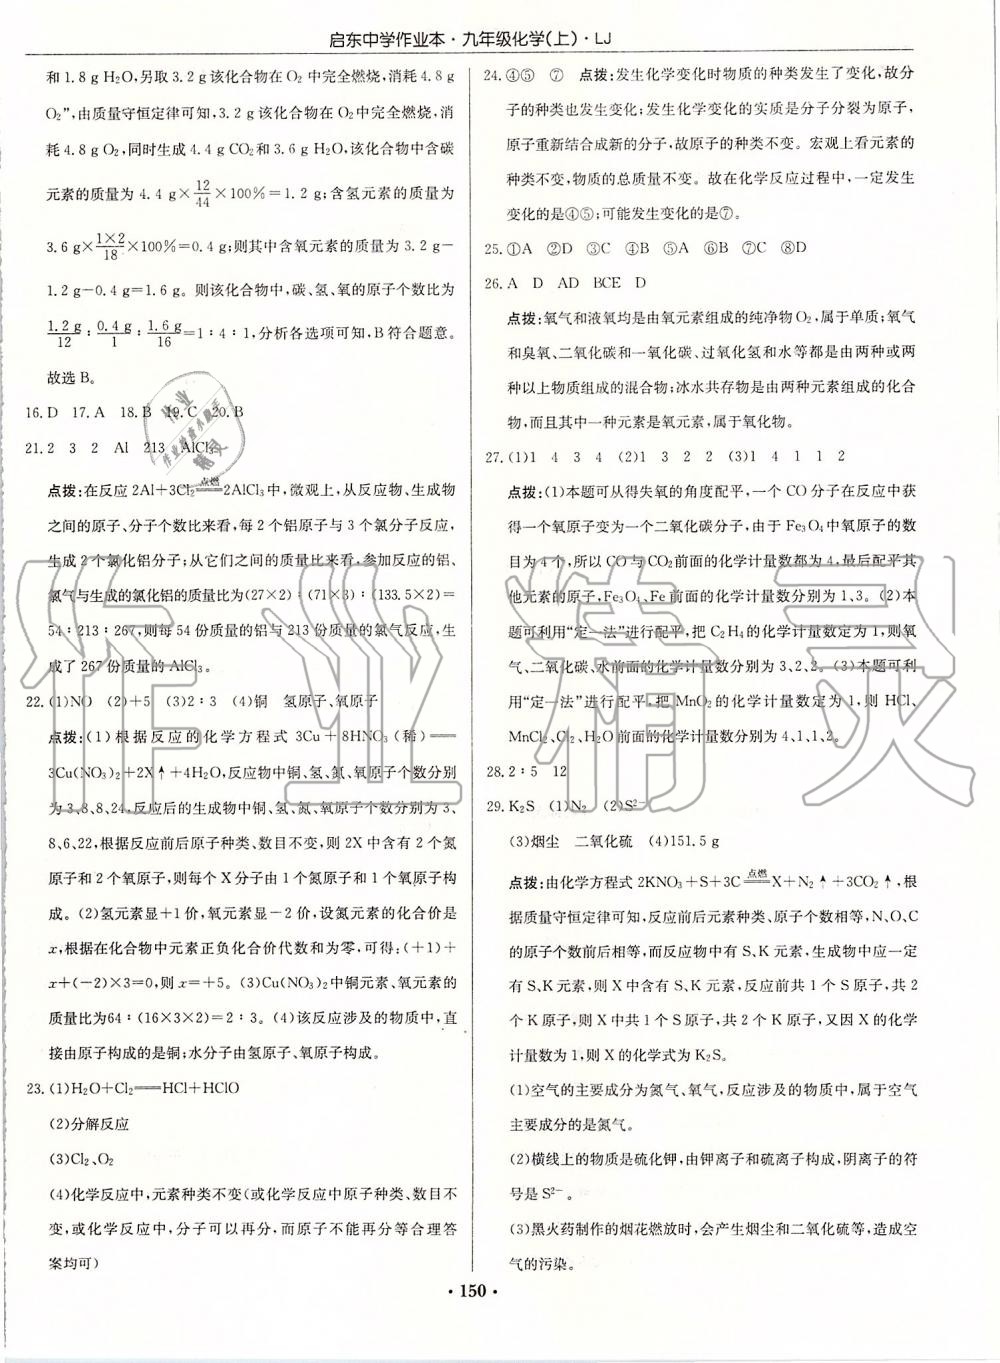 启东中学作业本·九年级化学(上)·LJ
和 1.8 g H₂O,另取 3.2 g 该化合物在 O₂ 中完全燃烧,消耗 4.8 g
O₂”,由质量守恒定律可知,3.2 g 该化合物在 O₂ 中完全燃烧,消
耗 4.8 g O₂,同时生成 4.4 g CO₂ 和 3.6 g H₂O,该化合物中含碳
元素的质量为 4.4 g×12/44×100%=1.2 g;含氢元素的质量为
3.6 g×1×2/18×100%=0.4 g;则其中含氧元素的质量为 3.2 g-
1.2 g-0.4 g=1.6 g。则该化合物中,碳、氢、氧的原子个数比为
1.2 g/12∶0.4 g/1∶1.6 g/16=1∶4∶1,分析各选项可知,B 符合题意。
故选 B。
16. D 17. A 18. B 19. C 20. B
21. 2 3 2 Al 213 AlCl₃
点拨:在反应 2Al+3Cl₂ 点燃══ 2AlCl₃ 中,微观上,从反应物、生成物
之间的原子、分子个数比来看,每 2 个铝原子与 3 个氯分子反应,
生成 2 个氯化铝分子;从它们之间的质量比来看,参加反应的铝、
氯气与生成的氯化铝的质量比为(27×2)∶(71×3)∶(133.5×2)=
54∶213∶267,则每 54 份质量的铝与 213 份质量的氯气反应,生
成了 267 份质量的 AlCl₃。
22. (1)NO (2)+5 (3)2∶3 (4)铜 氢原子、氧原子
点拨:(1)根据反应的化学方程式 3Cu+8HNO₃(稀)══
3Cu(NO₃)₂+2X↑+4H₂O,反应物中铜、氢、氮、氧原子个数分别
为 3、8、8、24,反应后的生成物中铜、氢、氮、氧原子个数分别为 3、
8、6、22,根据反应前后原子种类、数目不变,则 2X 中含有 2 个氮
原子和 2 个氧原子,则每个 X 分子由 1 个氮原子和 1 个氧原子构
成。(2)氢元素显+1 价,氧元素显-2 价,设氮元素的化合价是
x,根据在化合物中元素正负化合价代数和为零,可得:(+1)+
x+(-2)×3=0,则 x=+5。(3)Cu(NO₃)₂ 中铜元素、氧元素的
质量比为64∶(16×3×2)=2∶3。(4)该反应涉及的物质中,直
接由原子构成的是铜;水分子由氢原子、氧原子构成。
23. (1)H₂O+Cl₂══HCl+HClO
(2)分解反应
(3)Cl₂、O₂
(4)化学反应中,元素种类不变(或化学反应中原子种类、数目不
变,或化学反应中,分子可以再分,而原子不能再分等合理答
案均可)
24. ④⑤ ⑦ 点拨:发生化学变化时物质的种类发生了变化,故分
子的种类也发生变化;发生化学变化的实质是分子分裂为原子,
原子重新结合成新的分子,故原子的种类不变。宏观上看元素的
种类不变,物质的总质量不变。故在化学反应过程中,一定发生
变化的是④⑤;可能发生变化的是⑦。
25. ①A ②D ③C ④B ⑤A ⑥B ⑦C ⑧D
26. A D AD BCE D
点拨:氧气和液氧均是由氧元素组成的纯净物 O₂,属于单质;氧气
和臭氧、二氧化碳和一氧化碳、过氧化氢和水等都是由两种或两
种以上物质组成的混合物;冰水共存物是由两种元素组成的化合
物,而且其中一种元素是氧元素,属于氧化物。
27. (1)1 4 3 4 (2)1 3 2 2 (3)1 4 1 1 2
点拨:(1)本题可从得失氧的角度配平,一个 CO 分子在反应中获
得一个氧原子变为一个二氧化碳分子,由于 Fe₃O₄ 中氧原子的数
目为 4 个,所以 CO 与 CO₂ 前面的化学计量数都为 4,最后配平其
他元素的原子,Fe₃O₄、Fe 前面的化学计量数分别为 1、3。(2)本
题可利用“定一法”进行配平,把 C₂H₄ 的化学计量数定为 1,则氧
气、二氧化碳、水前面的化学计量数分别为 3、2、2。(3)本题可利
用“定一法”进行配平,把 MnO₂ 的化学计量数定为 1,则 HCl、
MnCl₂、Cl₂、H₂O 前面的化学计量数分别为 4、1、1、2。
28. 2∶5 12
29. K₂S (1)N₂ (2)S²⁻
(3)烟尘 二氧化硫 (4)151.5 g
点拨:由化学方程式 2KNO₃+S+3C 点燃══ X+N₂↑+3CO₂↑,根
据质量守恒定律可知,反应前后元素种类、原子个数相等,N、O、C
的原子个数前后相等,而反应物中有 S、K 元素,生成物中应一定
有 S、K 元素,则 X 中含有 S、K 元素,反应前共 1 个 S 原子,共 2
个 K 原子,则 X 中共 1 个 S 原子,共 2 个 K 原子,又因 X 的化学
计量数为 1,则 X 的化学式为 K₂S。
(1)空气的主要成分为氮气、氧气,反应涉及的物质中,属于空气
主要成分的是氮气。
(2)横线上的物质是硫化钾,由钾离子和硫离子构成,阴离子的符
号是 S²⁻。
(3)黑火药制作的烟花燃放时,会产生烟尘和二氧化硫等,造成空
气的污染。
·150·
作业精灵